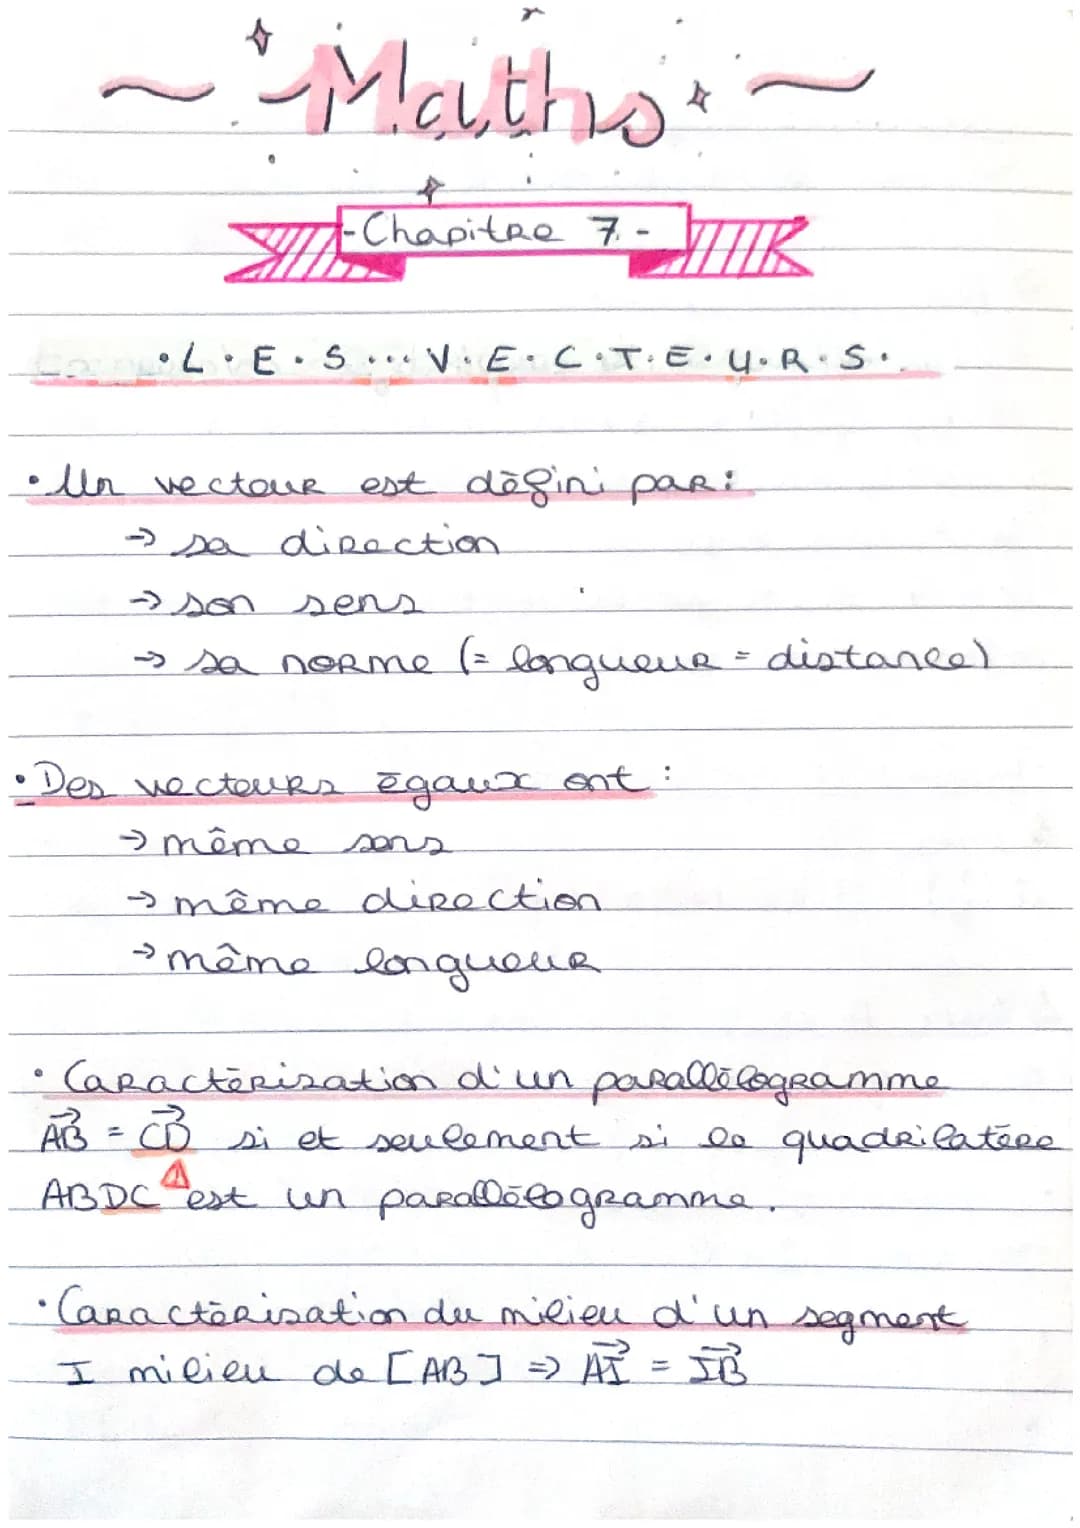 Maths
-Chapitre 7.-
•L•E•S•••V•E•C•T•E•U•R•S•
• Un vecteur est défini par:
→ sa direction
→ son sens
→ sa norme (= longueur = distance)
• Des vecteurs égaux ont :
→ même sens
→ même direction
→ même longueur
• Caractérisation d'un parallélogramme
AB⃗ = CD⃗ si et seulement si le quadrilatère
ABDC ⚠ est un parallélogramme.
• Caractérisation du milieu d'un segment
I milieu de [AB] ⇒ AI⃗ = IB⃗